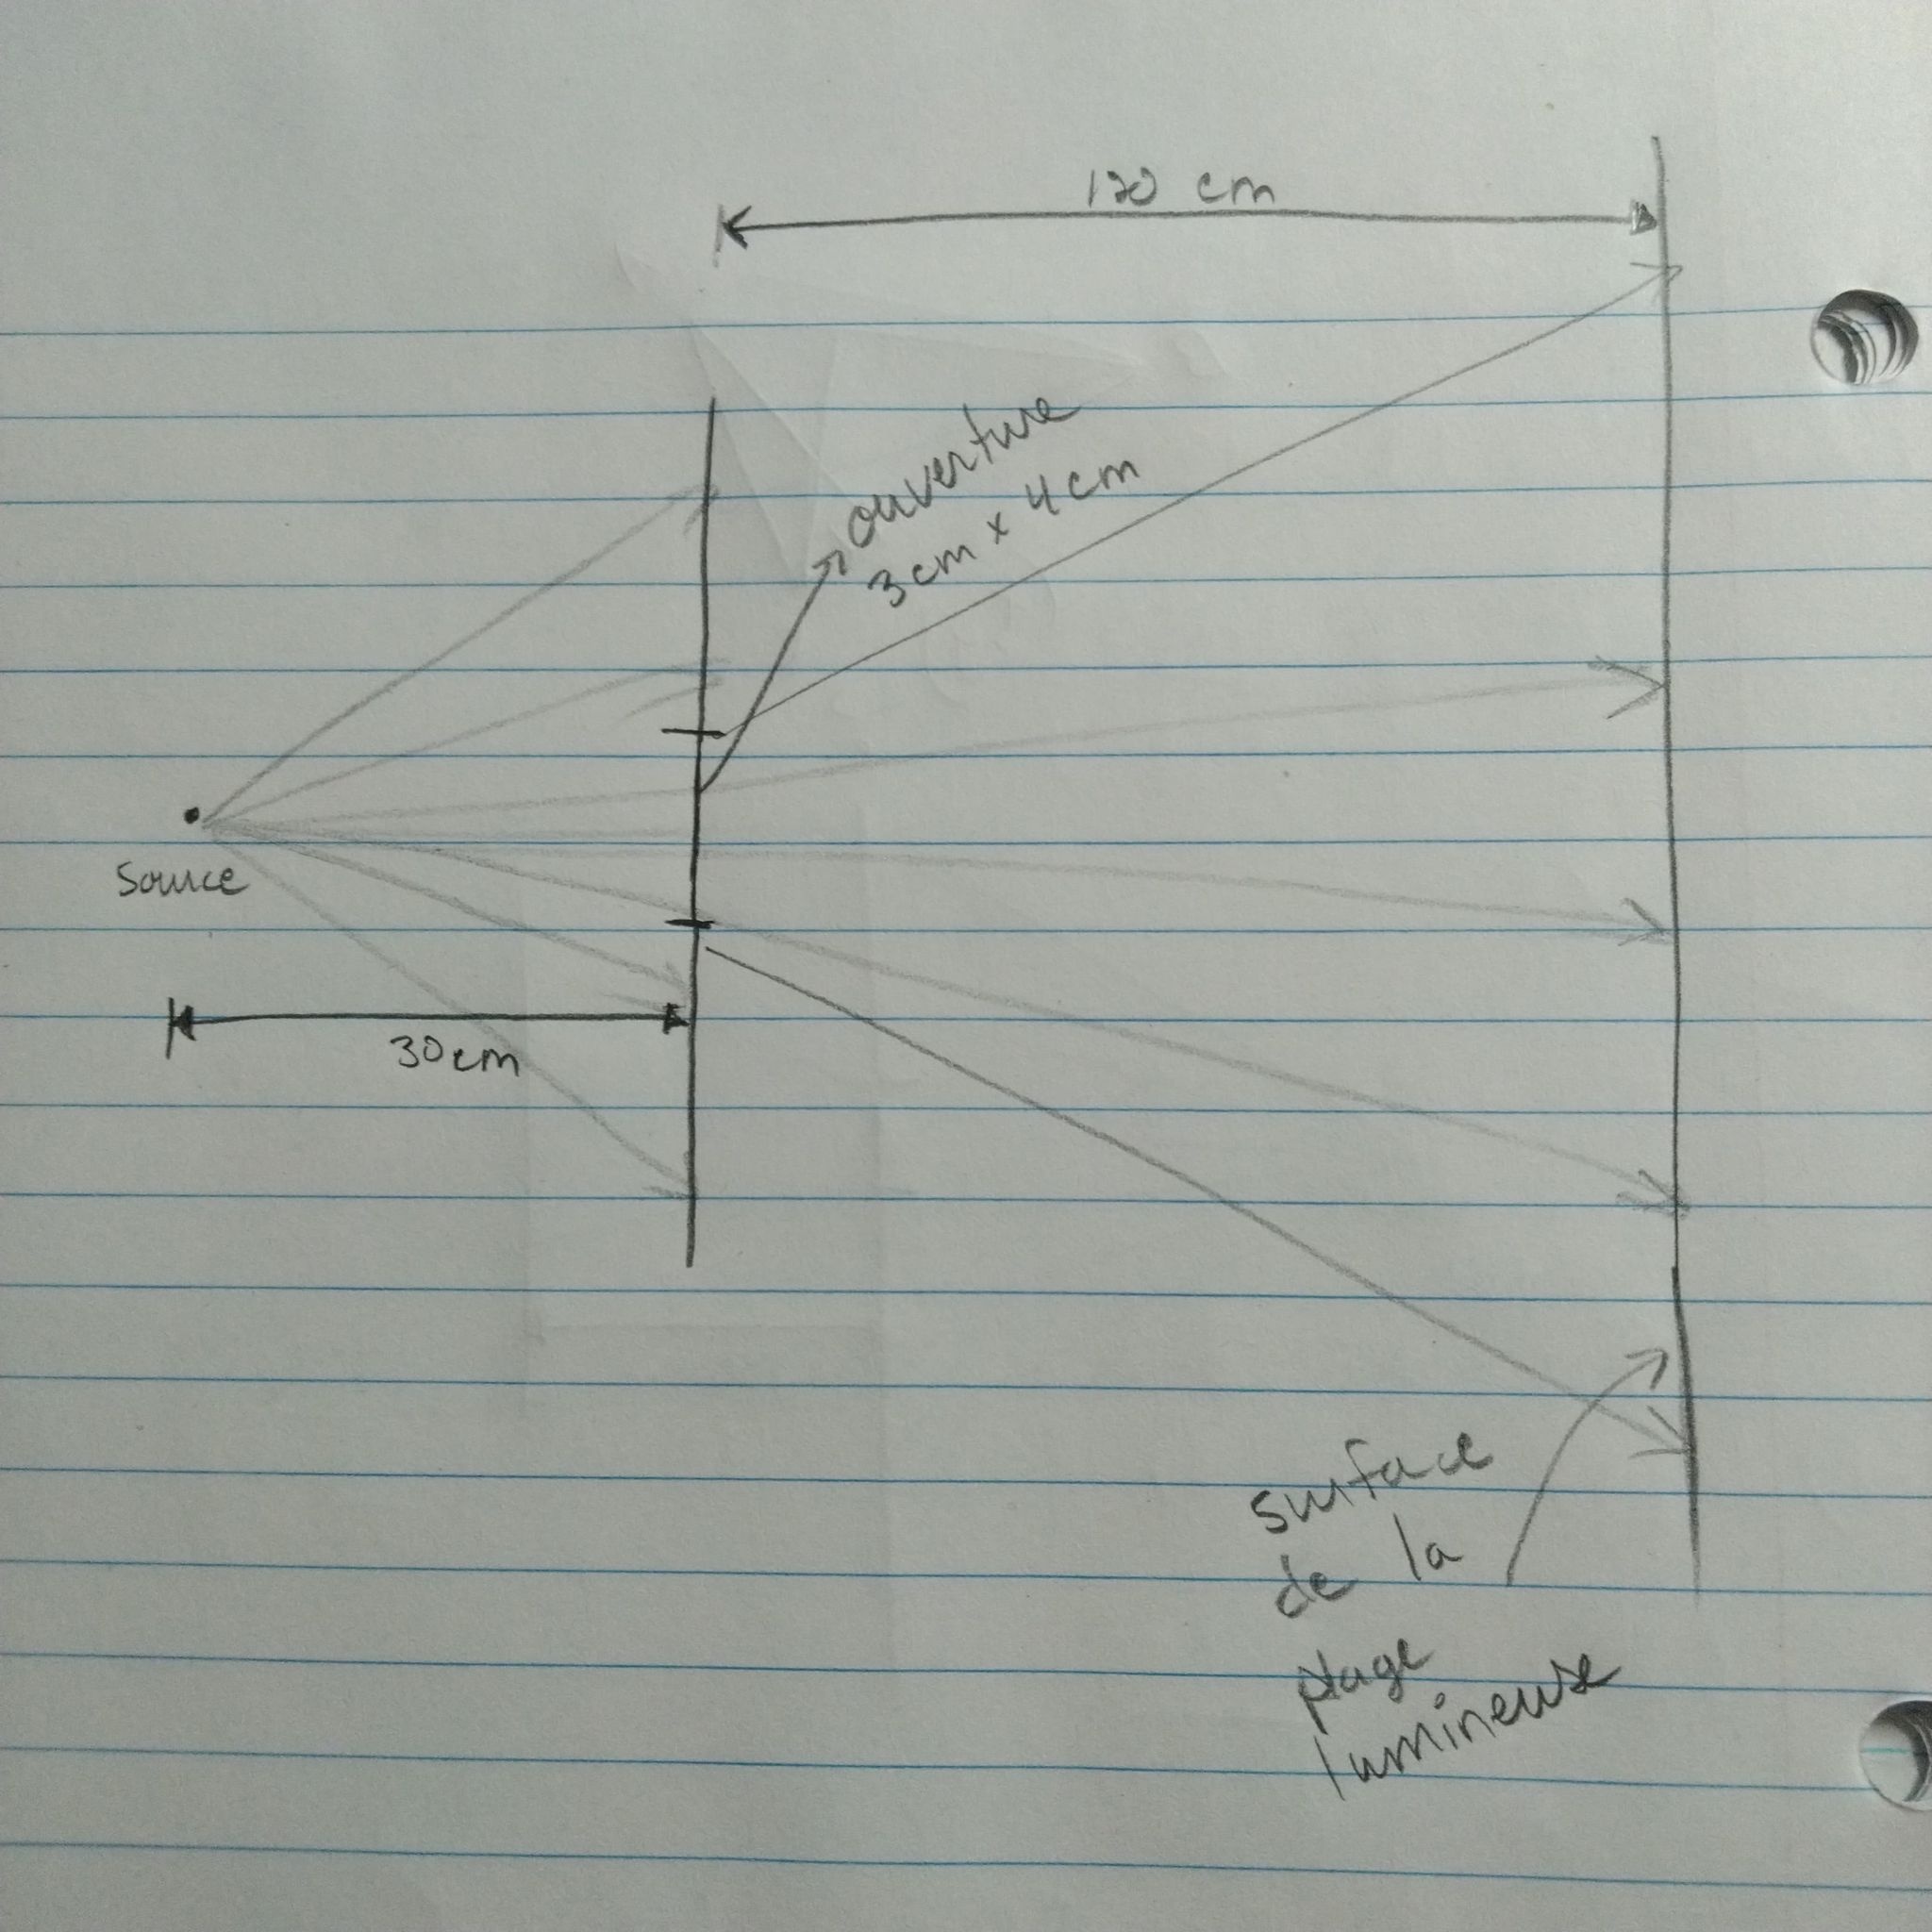 120 cm
ouverture
3cm x 4cm
Source
30cm
surface
de la
plage
lumineuse